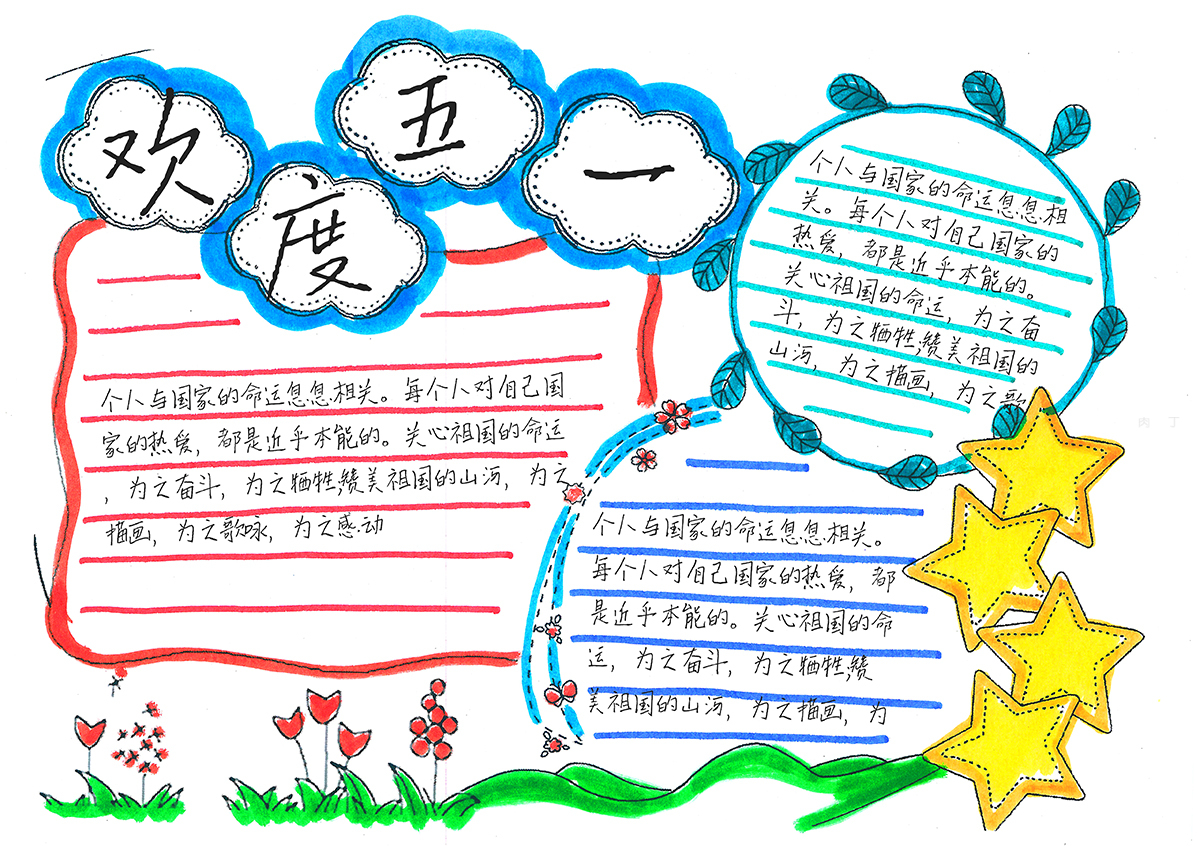 欢度五一
个人与国家的命运息息相
关。每个人对自己国家的
热爱，都是近乎本能的。
关心祖国的命运，为之奋
斗，为之牺牲,赞美祖国的
山河，为之描画，为之歌
个人与国家的命运息息相关。每个人对自己国
家的热爱，都是近乎本能的。关心祖国的命运
，为之奋斗，为之牺牲,赞美祖国的山河，为之
描画，为之歌咏，为之感动
个人与国家的命运息息相关。
每个人对自己国家的热爱，都
是近乎本能的。关心祖国的命
运，为之奋斗，为之牺牲,赞
美祖国的山河，为之描画，为